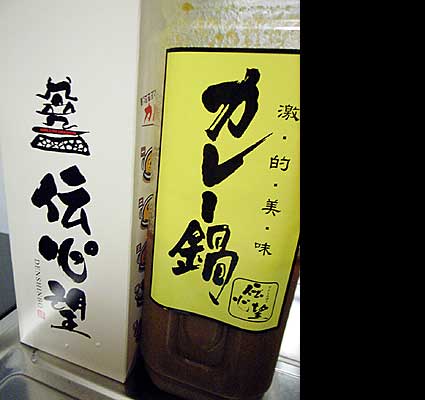 伝心望
DENSHINBO
カレー鍋
激・的・美・味
伝心望